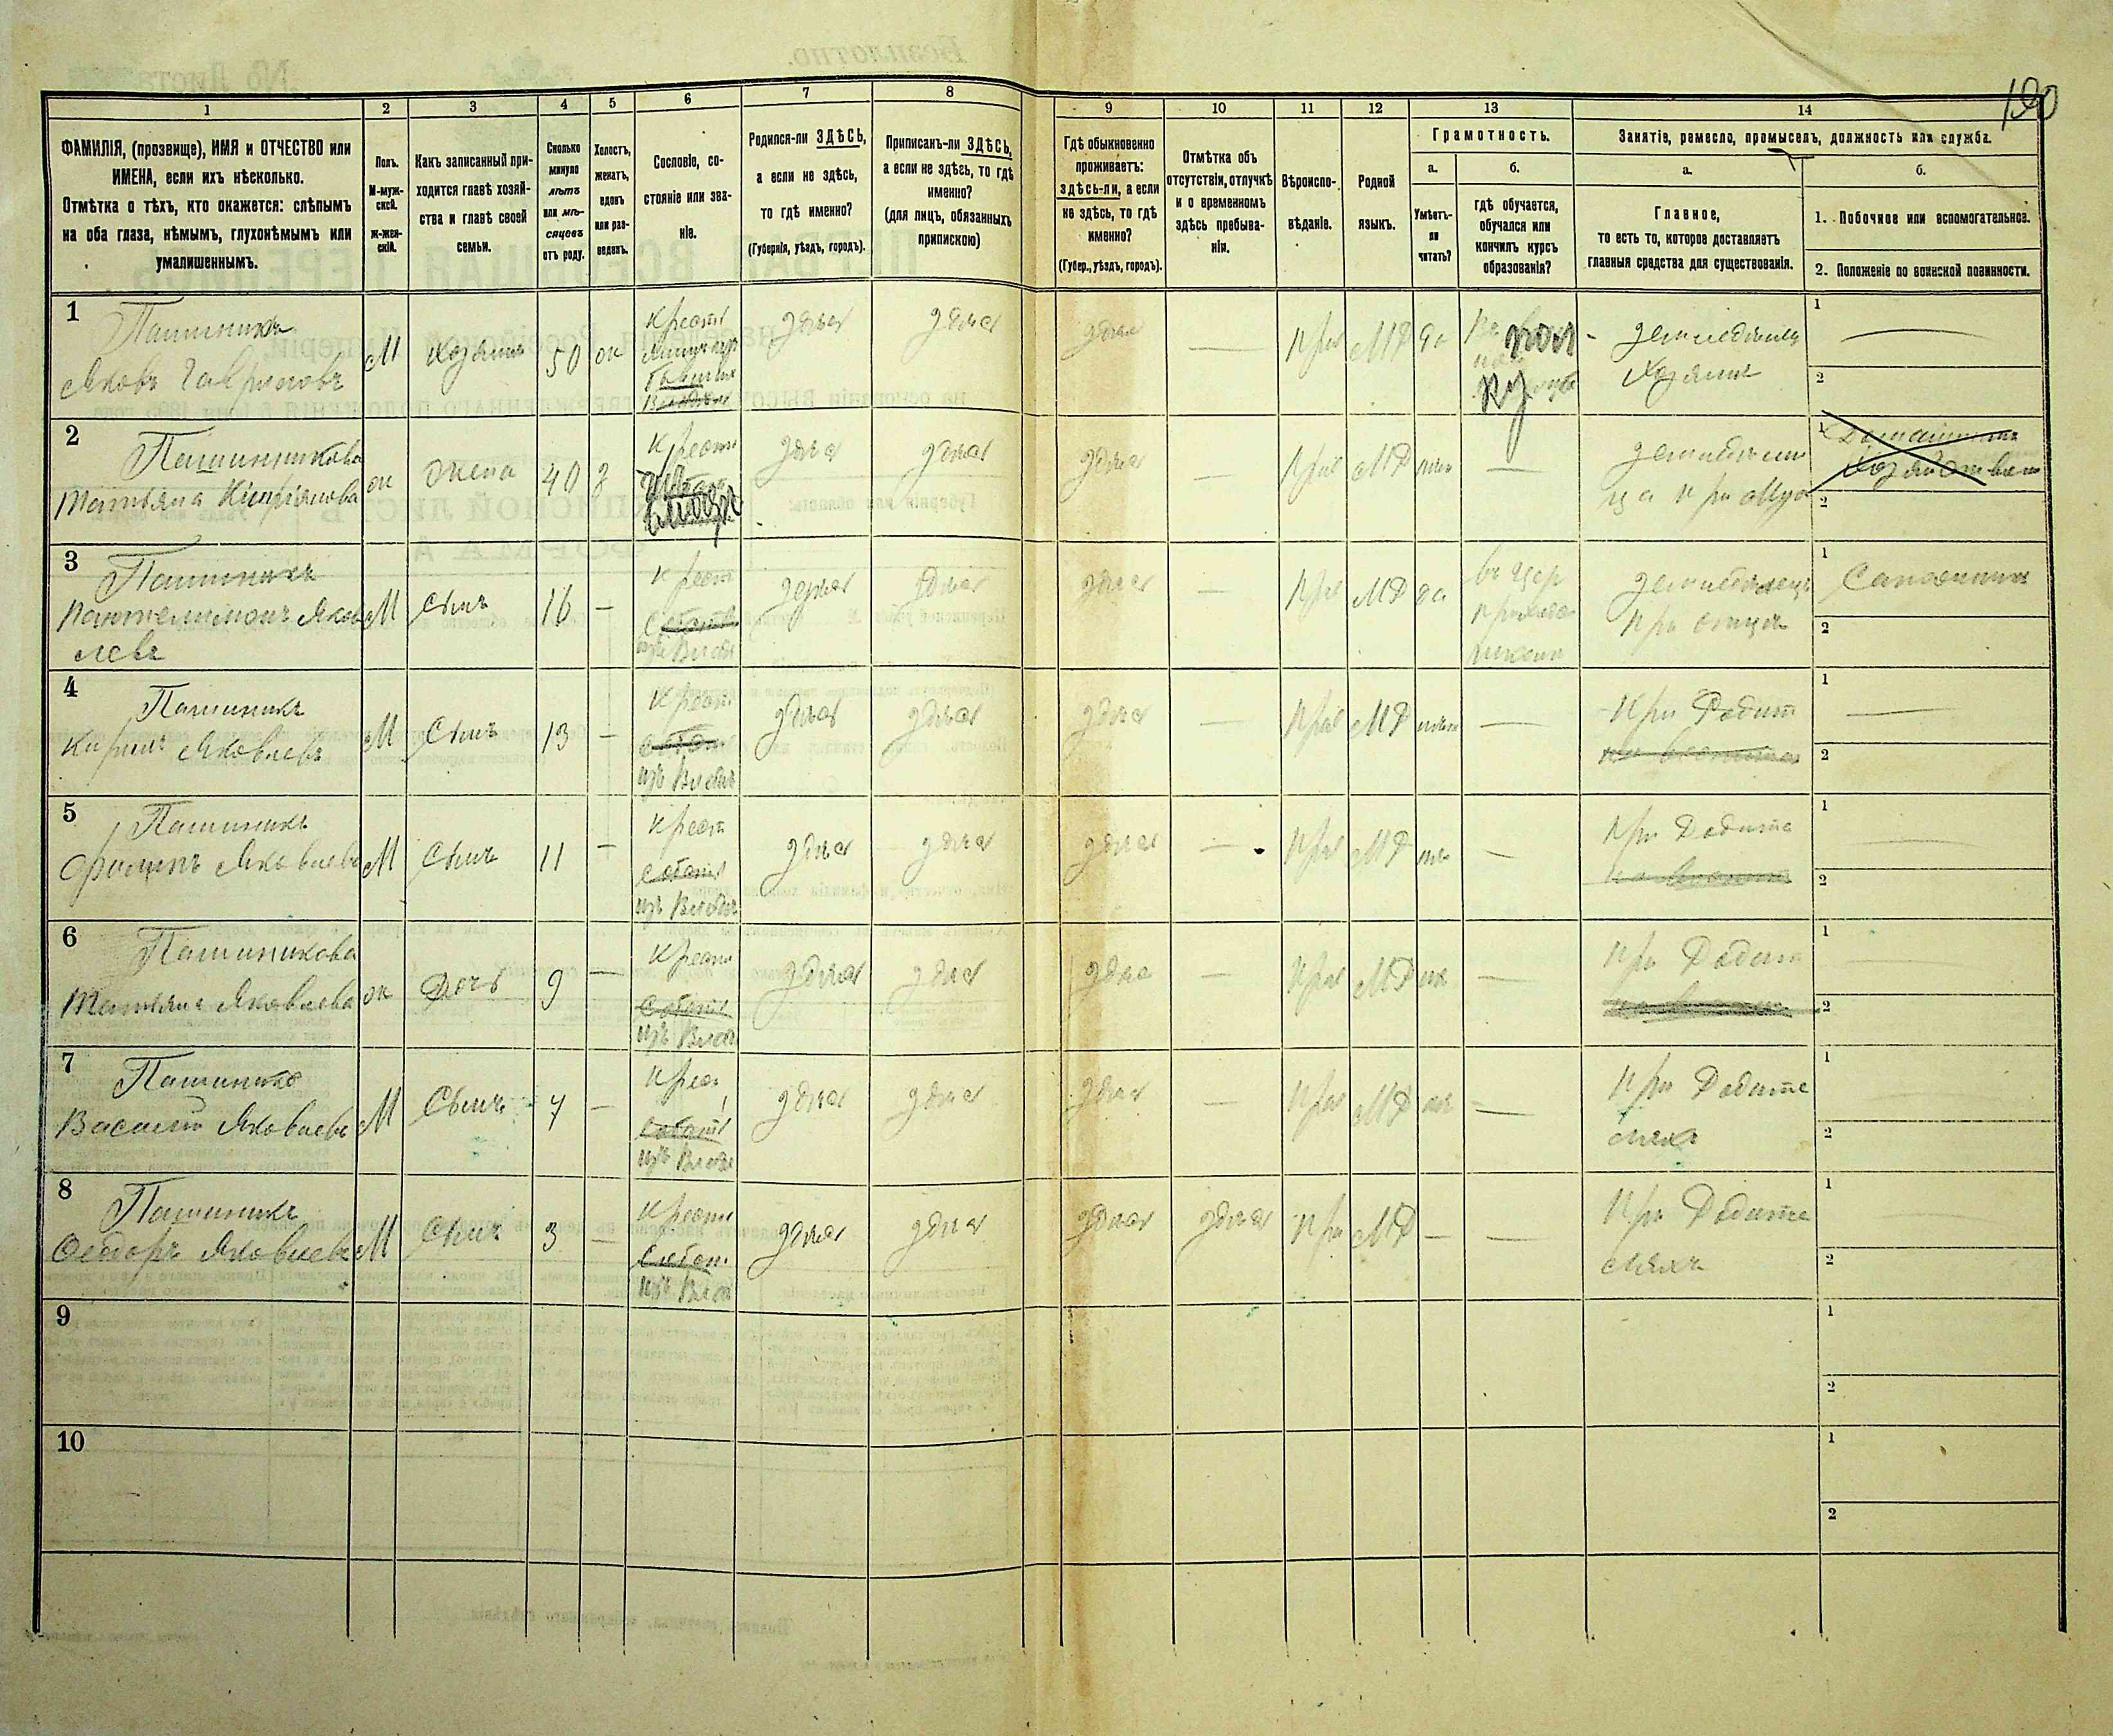 190
1 2 3 4 5 6 7 8 9 10 11 12 13 14
ФАМИЛІЯ, (прозвище), ИМЯ и ОТЧЕСТВО или
ИМЕНА, если ихъ нѣсколько.
Отмѣтка о тѣхъ, кто окажется: слѣпымъ
на оба глаза, нѣмымъ, глухонѣмымъ или
умалишеннымъ.
Полъ.
М-муж-
ской.
ж-жен-
скій.
Какъ записанный при-
ходится главѣ хозяй-
ства и главѣ своей
семьи.
Сколько
минуло
лѣтъ
или мѣ-
сяцевъ
отъ роду.
Холостъ,
женатъ,
вдовъ
или раз-
веденъ.
Сословіе, со-
стояніе или зва-
ніе.
Родился-ли ЗДѢСЬ,
а если не здѣсь,
то гдѣ именно?
(Губернія, уѣздъ, городъ).
Приписанъ-ли ЗДѢСЬ,
а если не здѣсь, то гдѣ
именно?
(для лицъ, обязанныхъ
припискою)
Гдѣ обыкновенно
проживаетъ:
здѣсь-ли, а если
не здѣсь, то гдѣ
именно?
(Губер., уѣздъ, городъ).
Отмѣтка объ
отсутствіи, отлучкѣ
и о временномъ
здѣсь пребыва-
ніи.
Вѣроиспо-
вѣданіе.
Родной
языкъ.
Грамотность.
а.
Умѣетъ-
ли
читать?
б.
гдѣ обучается,
обучался или
кончилъ курсъ
образованія?
Занятіе, ремесло, промыселъ, должность или служба.
а.
Главное,
то есть то, которое доставляетъ
главныя средства для существованія.
б.
1. Побочное или вспомогательное.
2. Положеніе по воинской повинности.
1
Пашиникъ
Яковъ Гавриловъ
М
Хозяинъ
50
ж
Крест
здѣсь
здѣсь
здѣсь
—
Прав
МР
да
земледѣлецъ
Хозяинъ
1
2
2
Пашинникова
Татьяна Кипріянова
ж
жена
40
з
Крест
здѣсь
здѣсь
здѣсь
—
Прав
МР
нѣт
—
земледѣлии
ца при Муж
1 Домашнимъ
Хозяйством
2
3
Пашиникъ
Пантелимонъ Яков
левъ
М
Сынъ
16
—
Крест
изъ Влад
здѣсь
здѣсь
здѣсь
—
Прав
МР
да
въ Цер
приход
школѣ
земледѣлецъ
при отцѣ
1 Сапожникъ
2
4
Пашиникъ
Кирилъ Яковлевъ
М
Сынъ
13
—
Крест
изъ Влад
здѣсь
здѣсь
здѣсь
—
Прав
МР
нѣт
—
При Родит
1
2
5
Пашиникъ
Филипъ Яковлевъ
М
Сынъ
11
—
Крест
изъ Влад
здѣсь
здѣсь
здѣсь
—
Прав
МР
нѣ
—
При Родите
1
2
6
Пашиникова
Татьяна Яковлева
ж
Дочь
9
—
Крест
изъ Влад
здѣсь
здѣсь
здѣсь
—
Прав
МР
нѣ
—
При Родит
1
2
7
Пашиникъ
Василій Яковлевъ
М
Сынъ
7
—
Крес
изъ Влад
здѣсь
здѣсь
здѣсь
—
Прав
МР
нѣ
—
При Родите
ляхъ
1
2
8
Пашиникъ
Ѳеодоръ Яковлевъ
М
Сынъ
3
—
Крест
изъ Вла
здѣсь
здѣсь
здѣсь
здѣсь
Пра
МР
—
—
При Родите
ляхъ
1
2
9
1
2
10
1
2